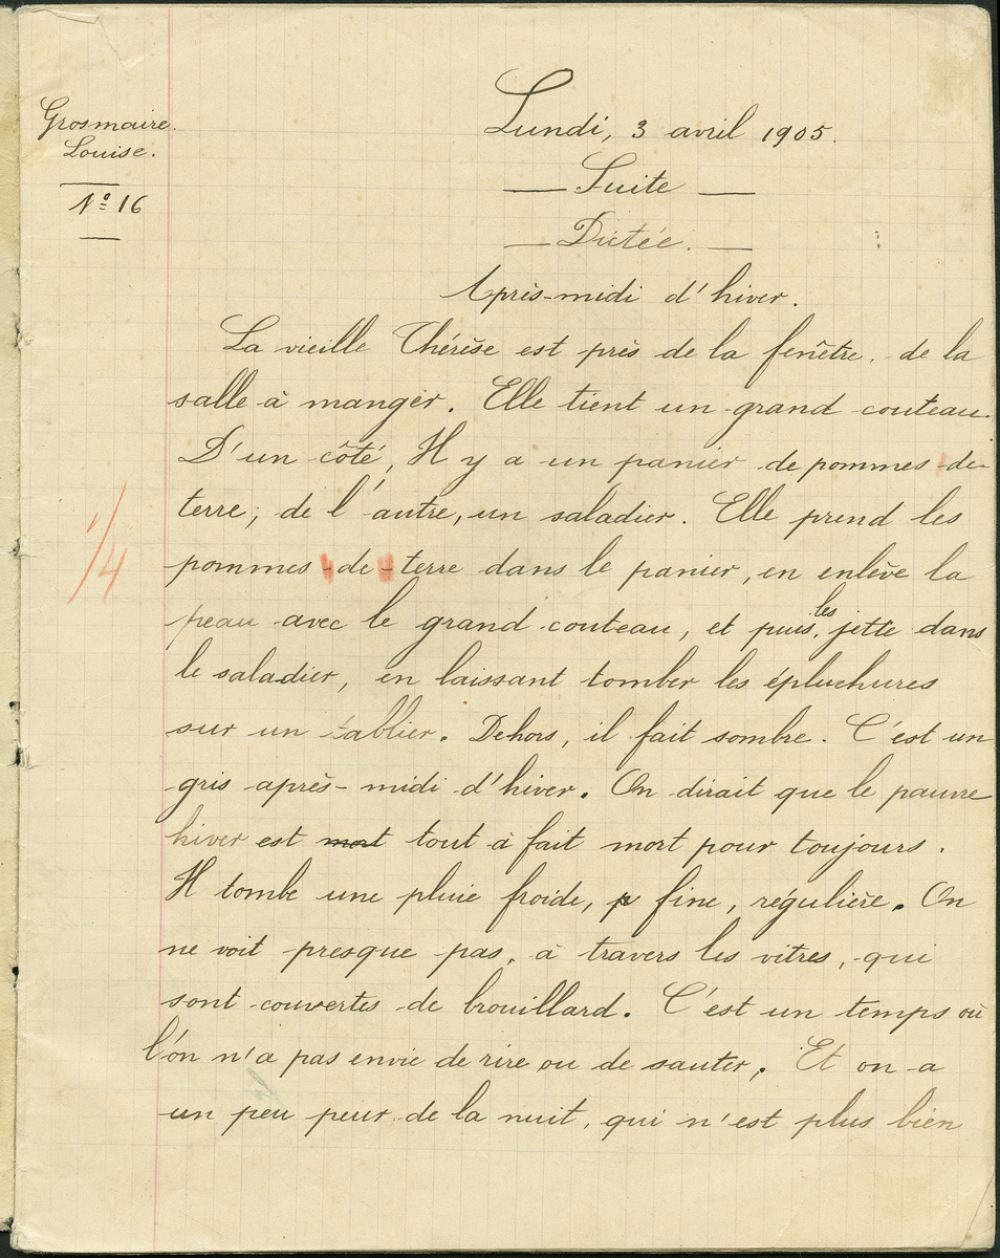 Grosmaire
Louise.
Nº 16
Lundi, 3 avril 1905.
— Suite —
— Dictée. —
Après-midi d'hiver.
La vieille Thérèse est près de la fenêtre. de la
salle à manger. Elle tient un grand couteau.
D'un côté, Il y a un panier de pommes-de-
terre; de l'autre, un saladier. Elle prend les
1/4
pommes-de-terre dans le panier, en enlève la
peau avec le grand couteau, et puis, les jette dans
le saladier, en laissant tomber les épluchures
sur un tablier. Dehors, il fait sombre. C'est un
gris après-midi d'hiver. On dirait que le pauvre
hiver est mort tout à fait mort pour toujours.
Il tombe une pluie froide, p fine, régulière. On
ne voit presque pas, à travers les vitres, qui
sont couvertes de brouillard. C'est un temps où
l'on n'a pas envie de rire ou de sauter. Et on a
un peu peur de la nuit, qui n'est plus bien